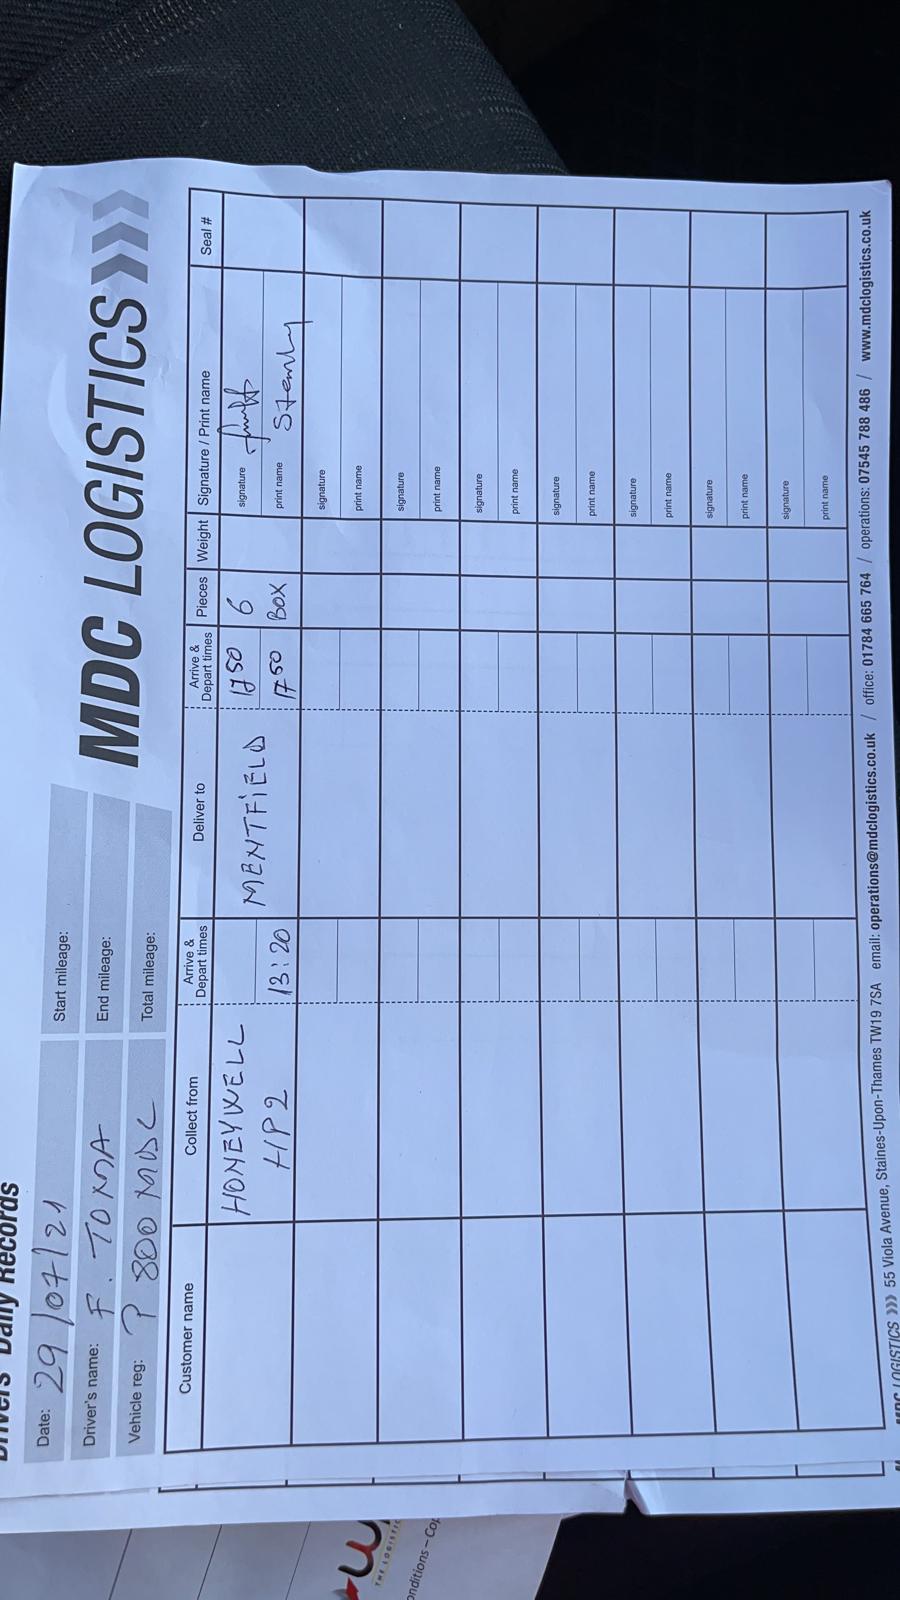 Drivers' Daily Records
Date: 29/07/21
Start mileage:
Driver's name: F. TOMA
End mileage:
Vehicle reg: P 800 MDC
Total mileage:
MDC LOGISTICS
Customer name
Collect from
Arrive & Depart times
Deliver to
Arrive & Depart times
Pieces
Weight
Signature / Print name
Seal #
HONEYWELL
HP2
13:20
MENTFiELD
1750
1750
6
BOX
signature
print name
signature
print name
signature
print name
signature
print name
signature
print name
signature
print name
signature
print name
signature
print name
MDC LOGISTICS 55 Viola Avenue, Staines-Upon-Thames TW19 7SA email: operations@mdclogistics.co.uk / office: 01784 665 764 / operations: 07545 788 486 / www.mdclogistics.co.uk
THE LOGISTIC
onditions – Cop